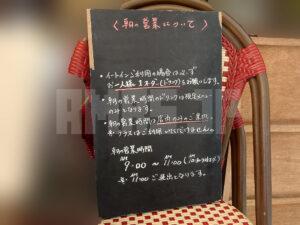 〈朝の営業について〉
・イートインご利用の場合は必ず
お一人様1オーダー(ドリンク)をお願いします。
・朝の営業時間のドリンクは限定メニュー
のみとなります。
・朝の営業時間は店内のみのご案内。
テラスはご利用いただけません。
朝の営業時間
AM 9:00 〜 AM 11:00
11:00 ご退出となります。